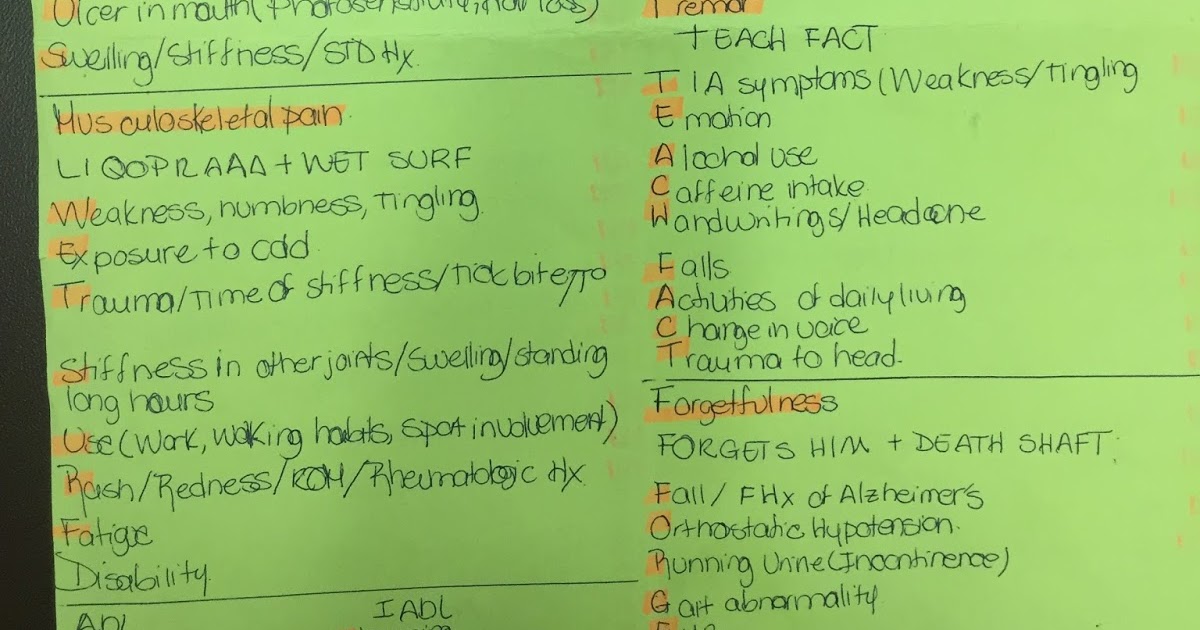 Ulcer in mouth (Photosensitivity, hair loss)
Swelling/Stiffness/STD Hx.
Musculoskeletal pain
LIQOPRAAA + WET SURF
Weakness, numbness, Tingling.
Exposure to cold
Trauma/Time of stiffness/Tick bite
Stiffness in other joints/Swelling/standing
long hours
Use (Work, walking habits, sport involvement)
Rash/Redness/ROM/Rheumatologic Hx
Fatigue
Disability.
ADL
IADL
Tremor
TEACH FACT
TIA symptoms (Weakness/Tingling
Emotion
Alochol use
Caffeine intake
Handwritings/Headache
Falls
Activities of daily living
Change in voice
Trauma to head.
Forgetfulness
FORGETS HIM + DEATH SHAFT.
Fall/ FHx of Alzheimer's
Orthostatic Hypotension.
Running Urine (Incontinence)
Gait abnormality